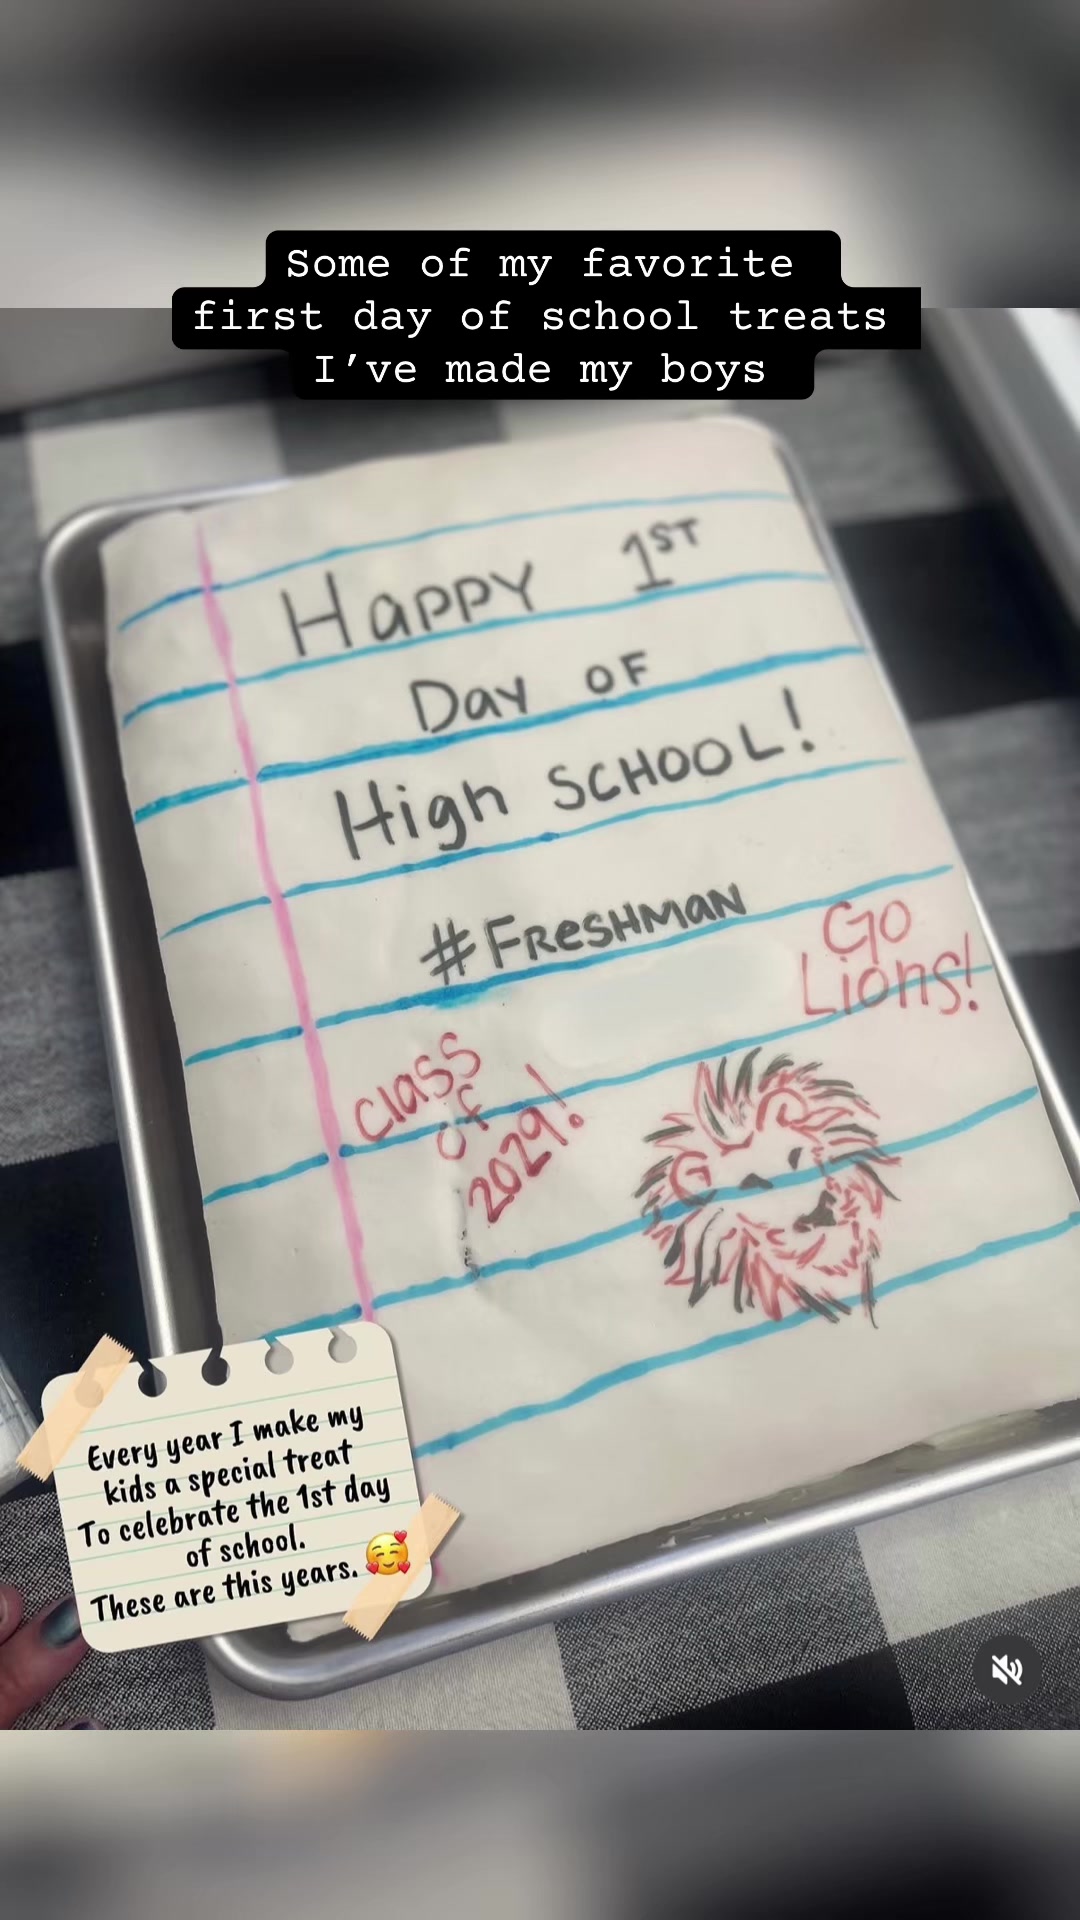 Some of my favorite
first day of school treats
I’ve made my boys
Happy 1ST
Day OF
High SCHOOL!
#FRESHMAN
Go
Lions!
Class
of
2029!
Every year I make my
kids a special treat
To celebrate the 1st day
of school.
These are this years. 🥰